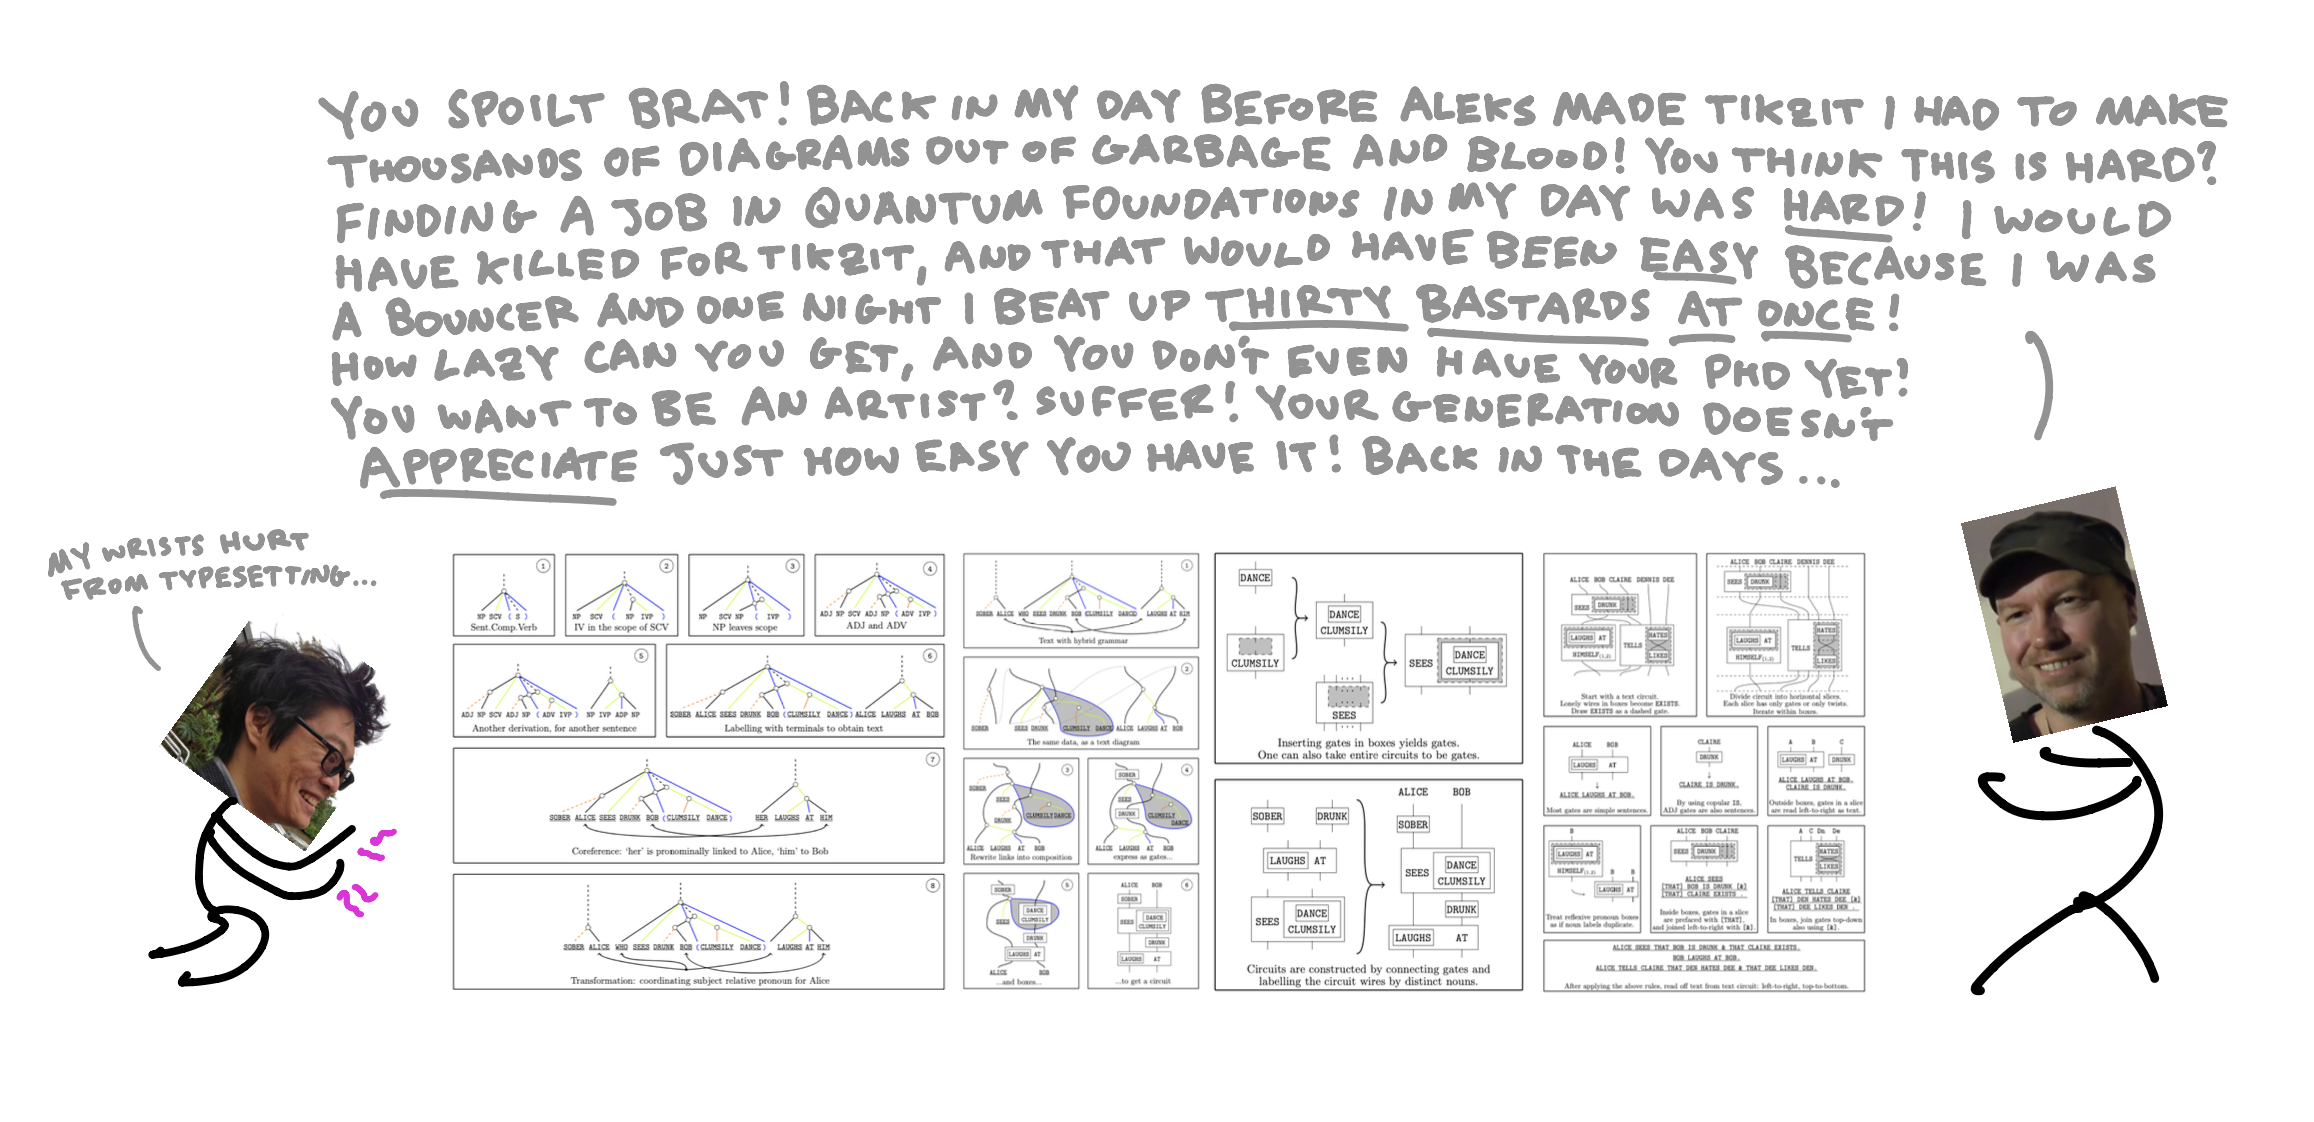 YOU SPOILT BRAT! BACK IN MY DAY BEFORE ALEKS MADE TIKZIT I HAD TO MAKE
THOUSANDS OF DIAGRAMS OUT OF GARBAGE AND BLOOD! YOU THINK THIS IS HARD?
FINDING A JOB IN QUANTUM FOUNDATIONS IN MY DAY WAS HARD! I WOULD
HAVE KILLED FOR TIKZIT, AND THAT WOULD HAVE BEEN EASY BECAUSE I WAS
A BOUNCER AND ONE NIGHT I BEAT UP THIRTY BASTARDS AT ONCE!
HOW LAZY CAN YOU GET, AND YOU DON'T EVEN HAVE YOUR PHD YET!
YOU WANT TO BE AN ARTIST? SUFFER! YOUR GENERATION DOESN'T
APPRECIATE JUST HOW EASY YOU HAVE IT! BACK IN THE DAYS...
MY WRISTS HURT
FROM TYPESETTING...
1
NP SCV ( S )
Sent.Comp.Verb
2
NP SCV ( NP IVP )
IV in the scope of SCV
3
NP SCV NP ( IVP )
NP leaves scope
4
ADJ NP SCV ADJ NP ( ADV IVP )
ADJ and ADV
5
ADJ NP SCV ADJ NP ( ADV IVP ) NP IVP ADP NP
Another derivation, for another sentence
6
SOBER ALICE SEES DRUNK BOB (CLUMSILY DANCE) ALICE LAUGHS AT BOB
Labelling with terminals to obtain text
7
SOBER ALICE SEES DRUNK BOB (CLUMSILY DANCE) HER LAUGHS AT HIM
Coreference: 'her' is pronominally linked to Alice, 'him' to Bob
8
SOBER ALICE WHO SEES DRUNK BOB (CLUMSILY DANCE) LAUGHS AT HIM
Transformation: coordinating subject relative pronoun for Alice
1
SOBER ALICE WHO SEES DRUNK BOB CLUMSILY DANCE LAUGHS AT HIM
Text with hybrid grammar
2
SOBER SEES DRUNK CLUMSILY DANCE ALICE LAUGHS AT BOB
The same data, as a text diagram
3
SOBER
SEES
DRUNK
CLUMSILY DANCE
ALICE LAUGHS AT BOB
Rewrite links into composition
4
SOBER
SEES
DRUNK
CLUMSILY
DANCE
ALICE LAUGHS AT BOB
express as gates...
5
SOBER
SEES
DANCE
CLUMSILY
DRUNK
LAUGHS AT
ALICE BOB
...and boxes...
6
ALICE BOB
SOBER
SEES
DANCE
CLUMSILY
DRUNK
LAUGHS AT
...to get a circuit
DANCE
CLUMSILY
DANCE
CLUMSILY
SEES
SEES
DANCE
CLUMSILY
Inserting gates in boxes yields gates.
One can also take entire circuits to be gates.
SOBER DRUNK
LAUGHS AT
SEES
DANCE
CLUMSILY
ALICE BOB
SOBER
SEES
DANCE
CLUMSILY
DRUNK
LAUGHS AT
Circuits are constructed by connecting gates and
labelling the circuit wires by distinct nouns.
ALICE BOB CLAIRE DENNIS DEE
SEES DRUNK
LAUGHS AT
HIMSELF(1,2)
TELLS
HATES
LIKES
Start with a text circuit.
Lonely wires in boxes become EXISTS.
Draw EXISTS as a dashed gate.
ALICE BOB CLAIRE DENNIS DEE
SEES DRUNK
LAUGHS AT
HIMSELF(1,2)
TELLS
HATES
LIKES
Divide circuit into horizontal slices.
Each slice has only gates or only twists.
Iterate within boxes.
ALICE BOB
LAUGHS AT
↓
ALICE LAUGHS AT BOB.
Most gates are simple sentences.
CLAIRE
DRUNK
↓
CLAIRE IS DRUNK.
By using copular IS,
ADJ gates are also sentences.
A B C
LAUGHS AT DRUNK
ALICE LAUGHS AT BOB.
CLAIRE IS DRUNK.
Outside boxes, gates in a slice
are read left-to-right as text.
B
LAUGHS AT
HIMSELF(1,2)
B B
LAUGHS AT
Treat reflexive pronoun boxes
as if noun labels duplicate.
ALICE BOB CLAIRE
SEES DRUNK
ALICE SEES
[THAT] BOB IS DRUNK [&]
[THAT] CLAIRE EXISTS .
Inside boxes, gates in a slice
are prefaced with [THAT],
and joined left-to-right with [&].
A C Dn De
TELLS
HATES
LIKES
ALICE TELLS CLAIRE
[THAT] DEN HATES DEE [&]
[THAT] DEE LIKES DEN .
In boxes, join gates top-down
also using [&].
ALICE SEES THAT BOB IS DRUNK & THAT CLAIRE EXISTS.
BOB LAUGHS AT BOB.
ALICE TELLS CLAIRE THAT DEN HATES DEE & THAT DEE LIKES DEN.
After applying the above rules, read off text from text circuit: left-to-right, top-to-bottom.